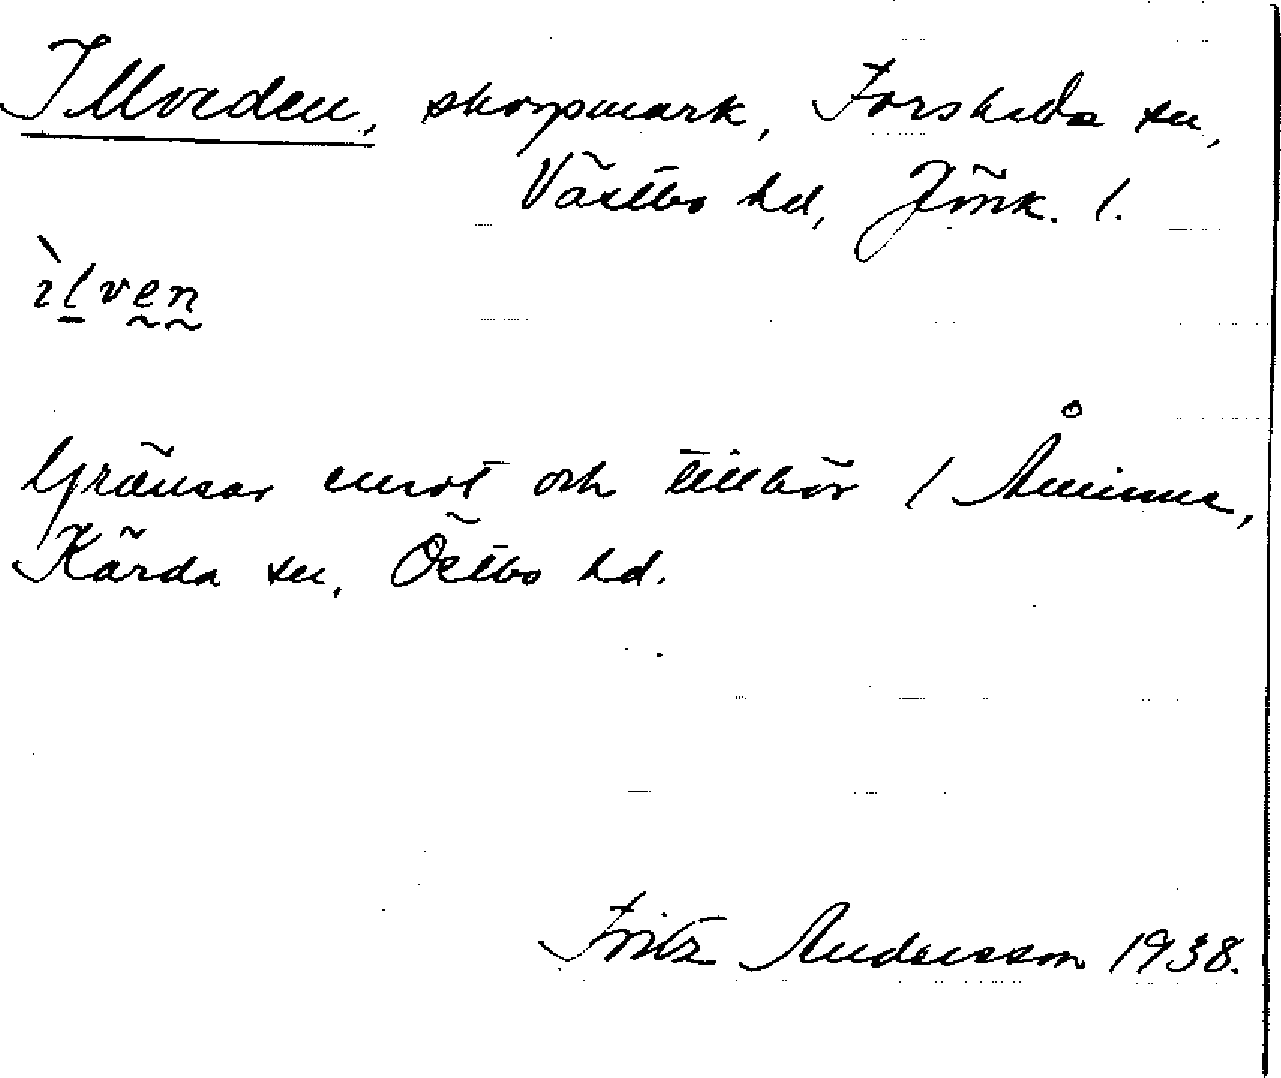 Illveden, skogsmark, Forsheda sn,
Västbo hd, Jönk. l.
ìlven
Gränsar emot och tillhör / Åminne,
Kärda sn, Östbo hd.
Fritz Andersson 1938.